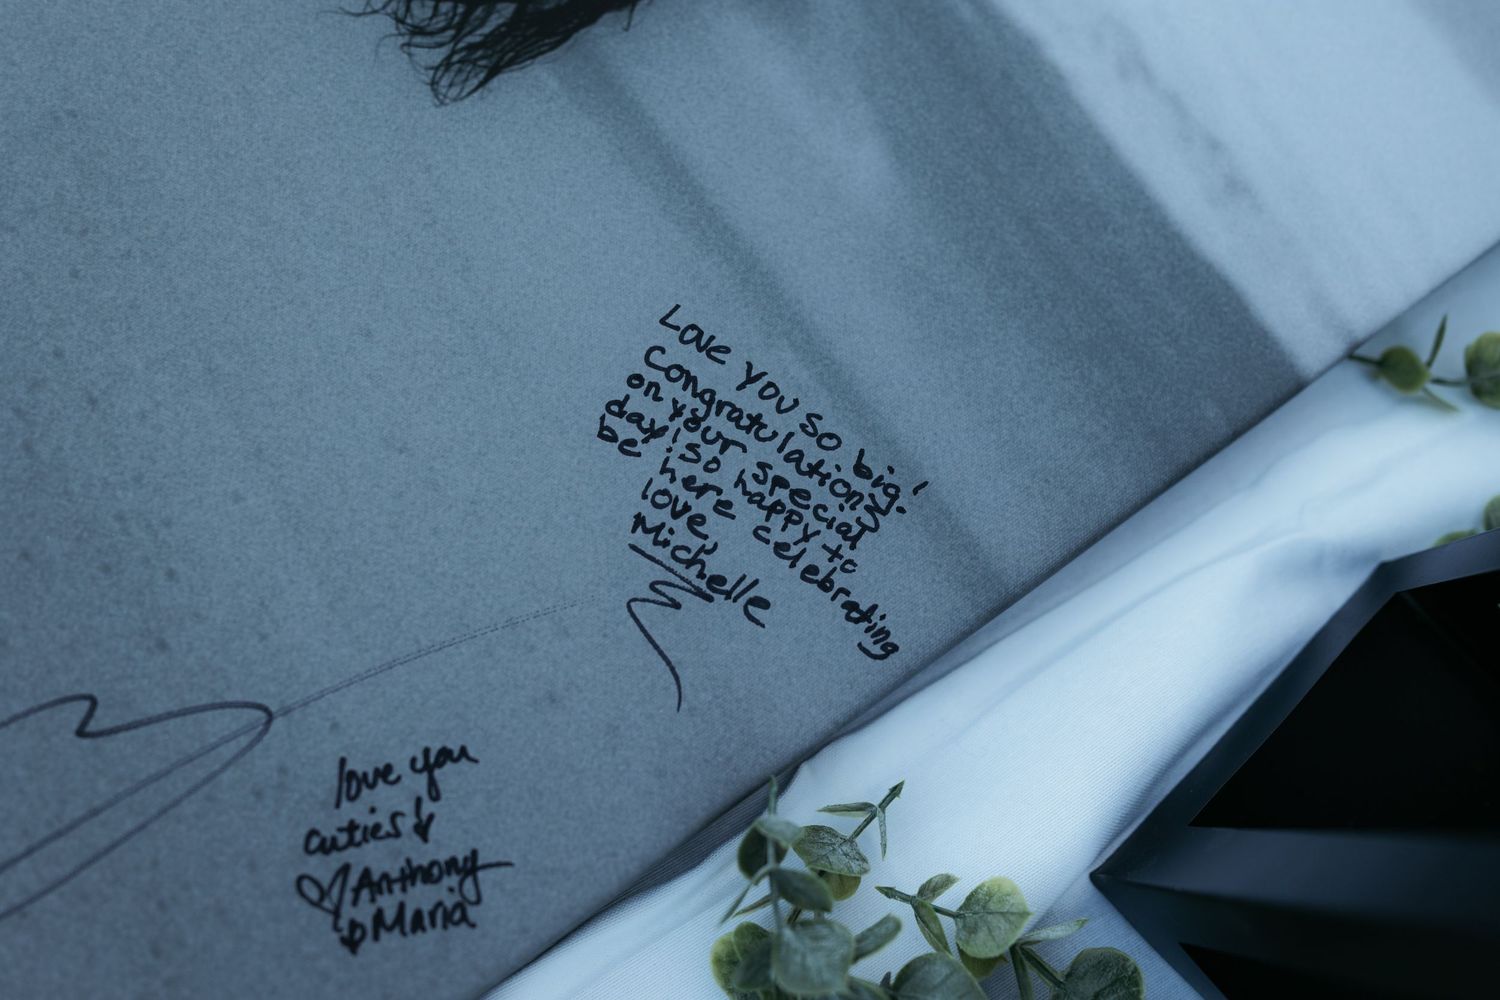 Love you so big!
Congratulations
on your special
day! So happy to
be here celebrating
love,
Michelle
love you
cuties!
Anthony
Maria